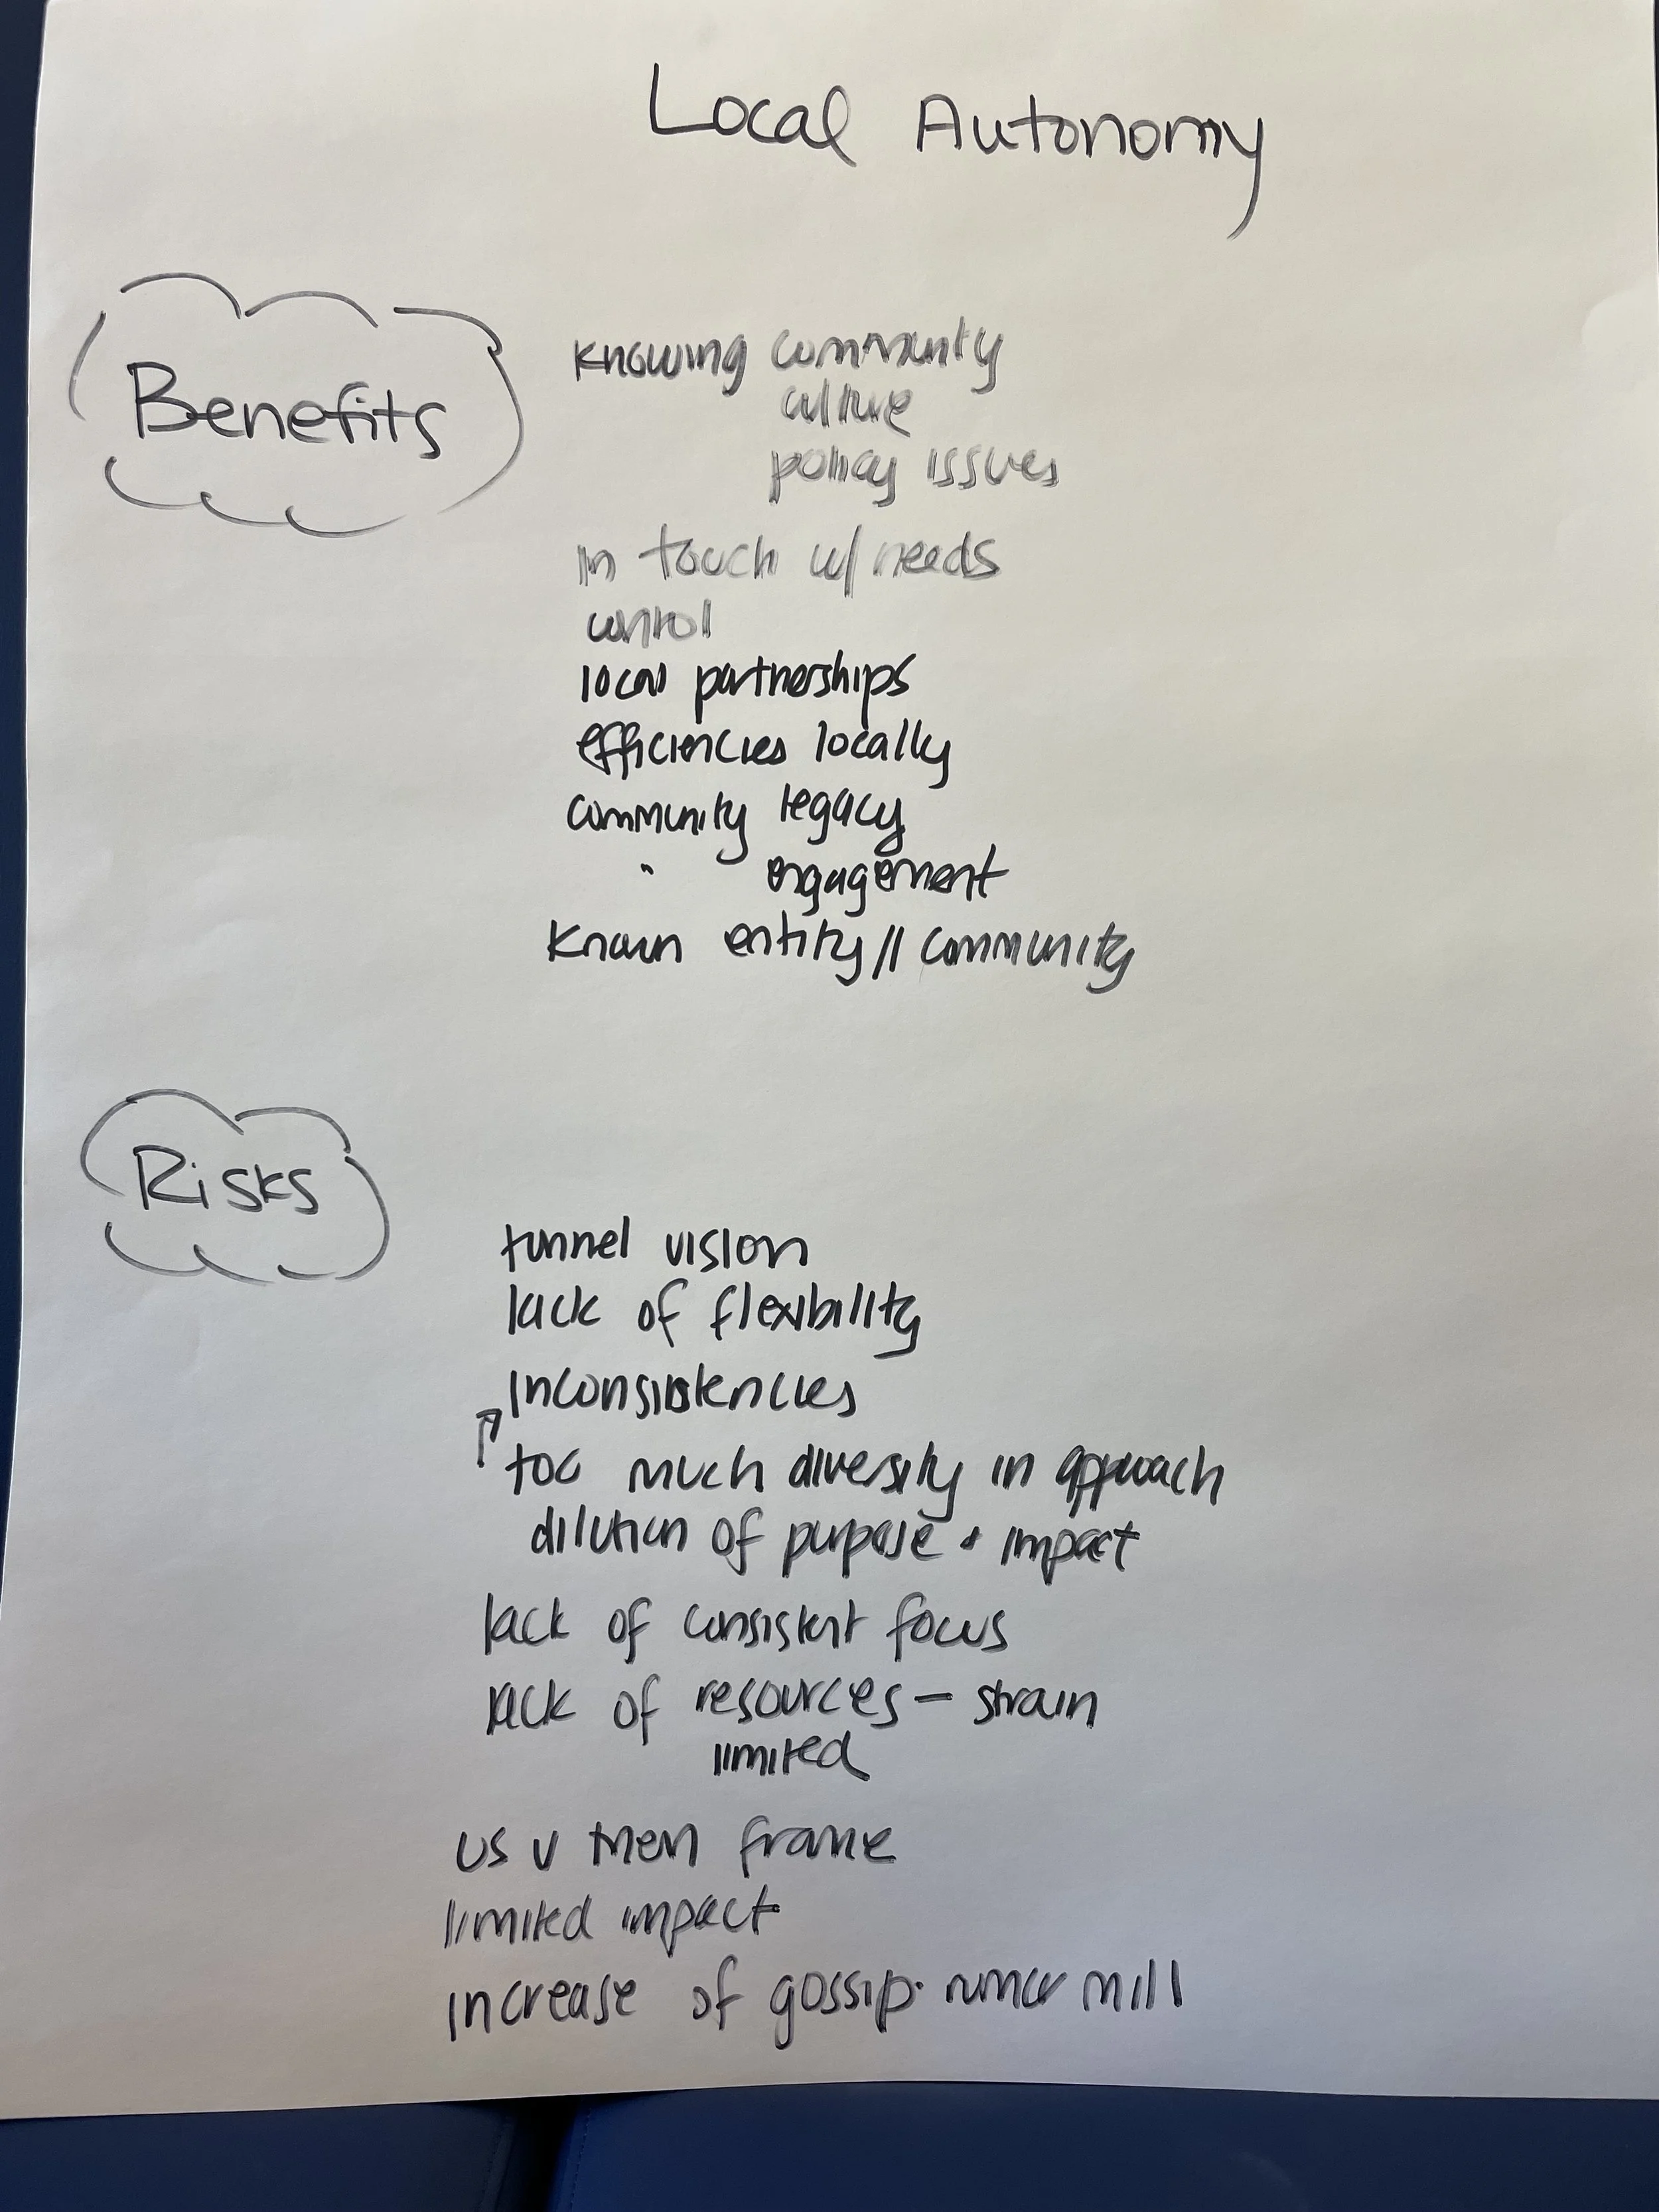 Local Autonomy
Benefits
Knowing community
culture
policy issues
in touch w/ needs
control
local partnerships
efficiencies locally
community legacy
" engagement
Known entity // community
Risks
tunnel vision
lack of flexibility
inconsistencies
↗ too much diversity in approach
dilution of purpose + impact
lack of consistent focus
lack of resources - strain
limited
us v them frame
limited impact
increase of gossip. rumor mill